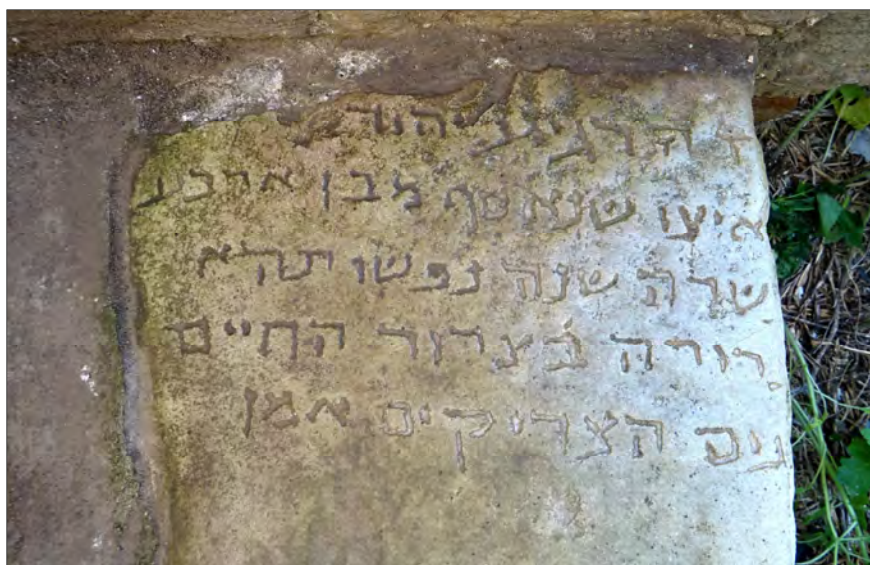 יהודה
שנאסף מבן ארבע
שרה שנה נפשו תהא
רורה בצרור החיים
הצדיקים אמן